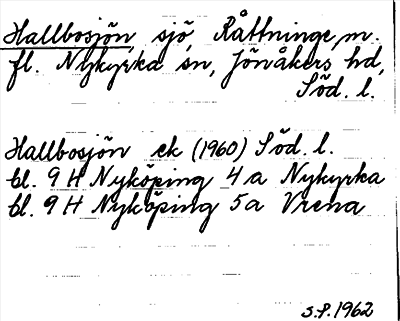 Hallbosjön, sjö, Råttninge, m.
fl. Nykyrka sn, Jönåkers hd,
Söd. l.
Hallbosjön ek (1960) Söd. l.
bl. 9 H Nyköping 4a Nykyrka
bl. 9 H Nyköping 5a Vrena
S.P. 1962